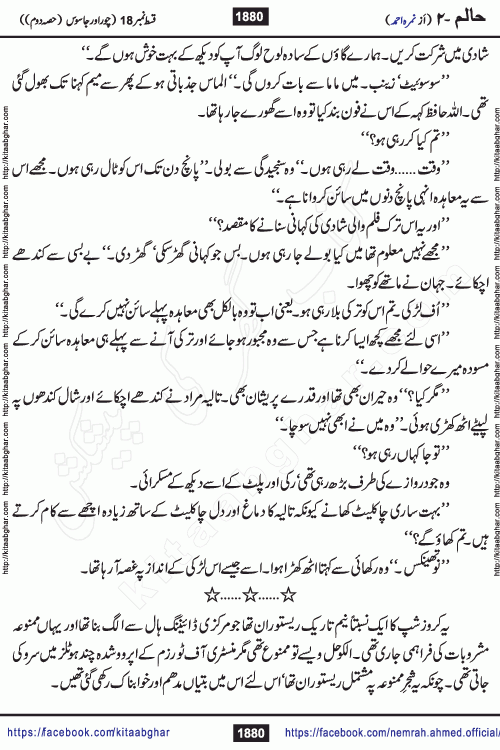 حالم -۲ (از نمرہ احمد)
1880
قسط نمبر 18 (چور اور جاسوس (حصہ دوم))
شادی میں شرکت کریں۔ ہمارے گاؤں کے سادہ لوح لوگ آپ کو دیکھ کے بہت خوش ہوں گے۔‘‘
’’سو سوئیٹ‘ زینب۔ میں ماما سے بات کروں گی۔‘‘ الماس جذباتی ہو کے پھر سے میم کہنا تک بھول گئی
تھی۔ اللہ حافظ کہہ کے اس نے فون بند کیا تو وہ اسے گھورے جا رہا تھا۔
’’تم کیا کر رہی ہو؟‘‘
’’وقت ...... وقت لے رہی ہوں۔‘‘ وہ سنجیدگی سے بولی۔ ’’پانچ دن تک اس کو ٹال رہی ہوں۔ مجھے اس
سے یہ معاہدہ انہی پانچ دنوں میں سائن کروانا ہے۔‘‘
’’اور یہ اس ترک فلم والی شادی کی کہانی سنانے کا مقصد؟‘‘
’’مجھے نہیں معلوم تھا میں کیا بولے جا رہی ہوں۔ بس جو کہانی گھڑ سکی‘ گھڑ دی۔‘‘ بے بسی سے کندھے
اچکائے۔ جہان نے ماتھے کو چھوا۔
’’اُف لڑکی۔ تم اس کو ترکی بلا رہی ہو۔ یعنی اب تو وہ بالکل بھی معاہدہ پہلے سائن نہیں کرے گی۔‘‘
’’اسی لئے مجھے کچھ ایسا کرنا ہے جس سے وہ مجبور ہو جائے اور ترکی آنے سے پہلے ہی معاہدہ سائن کر کے
مسودہ میرے حوالے کر دے۔‘‘
’’مگر کیا؟‘‘ وہ حیران بھی تھا اور قدرے پریشان بھی۔ تالیہ مراد نے کندھے اچکائے اور شال کندھوں پہ
لپیٹے اٹھ کھڑی ہوئی۔ ’’وہ میں نے ابھی نہیں سوچا۔‘‘
’’تو جا کہاں رہی ہو؟‘‘
وہ جو دروازے کی طرف بڑھ رہی تھی‘ رکی اور پلٹ کے اسے دیکھ کے مسکرائی۔
’’بہت ساری چاکلیٹ کھانے کیونکہ تالیہ کا دماغ اور دل چاکلیٹ کے ساتھ زیادہ اچھے سے کام کرتے
ہیں۔ تم کھاؤ گے؟‘‘
’’نو تھینکس۔‘‘ وہ رکھائی سے کہتا اٹھ کھڑا ہوا۔ اسے جیسے اس لڑکی کے انداز پہ غصہ آ رہا تھا۔
☆......☆......☆
یہ کروز شپ کا ایک نسبتاً نیم تاریک ریستوران تھا جو مرکزی ڈائننگ ہال سے الگ بنا تھا اور یہاں ممنوعہ
مشروبات کی فراہمی جاری تھی۔ الکوحل ویسے تو ممنوع تھی مگر منسٹری آف ٹورزم کے اپرووڈ شدہ چند ہوٹلز میں سرو کی
جاتی تھی۔ چونکہ یہ شجرِ ممنوعہ پہ مشتمل ریستوران تھا‘ اس لئے اس میں بتیاں مدھم اور خوابناک رکھی گئی تھیں۔
https://facebook.com/kitaabghar
1880
https://facebook.com/nemrah.ahmed.official/
http://kitaabghar.com http://kitaabghar.com http://kitaabghar.com http://kitaabghar.com http://kitaabghar.com
http://kitaabghar.com http://kitaabghar.com http://kitaabghar.com http://kitaabghar.com http://kitaabghar.com